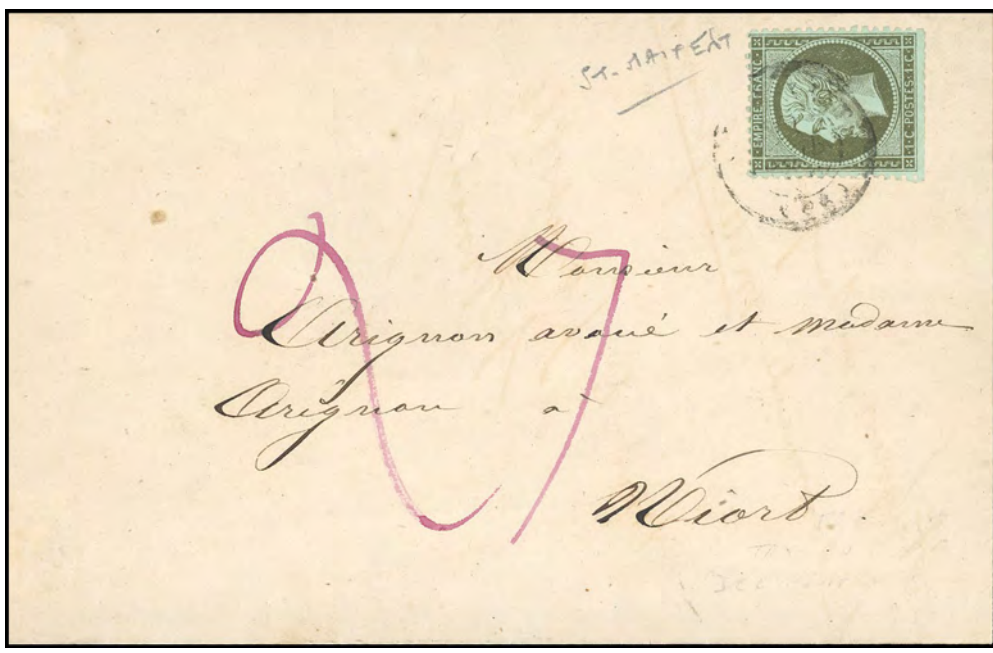 ST-MAIXENT
EMPIRE·FRANC·
1·C·POSTES·1·C
Monsieur
Arignon avoué et madame
Arignon à
Niort
27